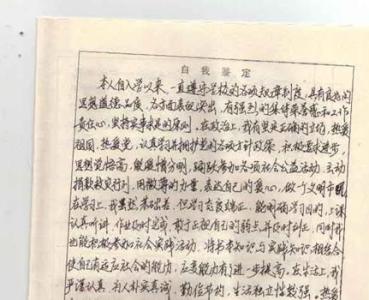 自我鉴定
本人自入学以来,一直遵守学校的各项规章制度,具有良好的
思想道德品质,各方面表现突出,有强烈的集体荣誉感和工作
责任心,坚持实事求是的原则。在政治上,我有坚定正确的立场,热爱
祖国,热爱党,认真学习并拥护党的各项方针政策,积极要求进步,
思想觉悟高,能爱憎分明,踊跃参加各项社会公益活动,主动
捐款救灾行列,用微薄的力量,表达自己的爱心,做个文明市民
在学习上,我虽然基础差,但学习态度端正,能明确学习目的,上课
认真听讲,作业及时完成,敢于正视自己的弱点并及时纠正,同时我
也能积极参加社会实践活动,将书本知识与实践知识相结合
使自己有适应社会的能力,应变能力有进一步提高。在生活上,我
严谨认真,为人朴实真诚,勤俭节约,生活独立性较强。热爱